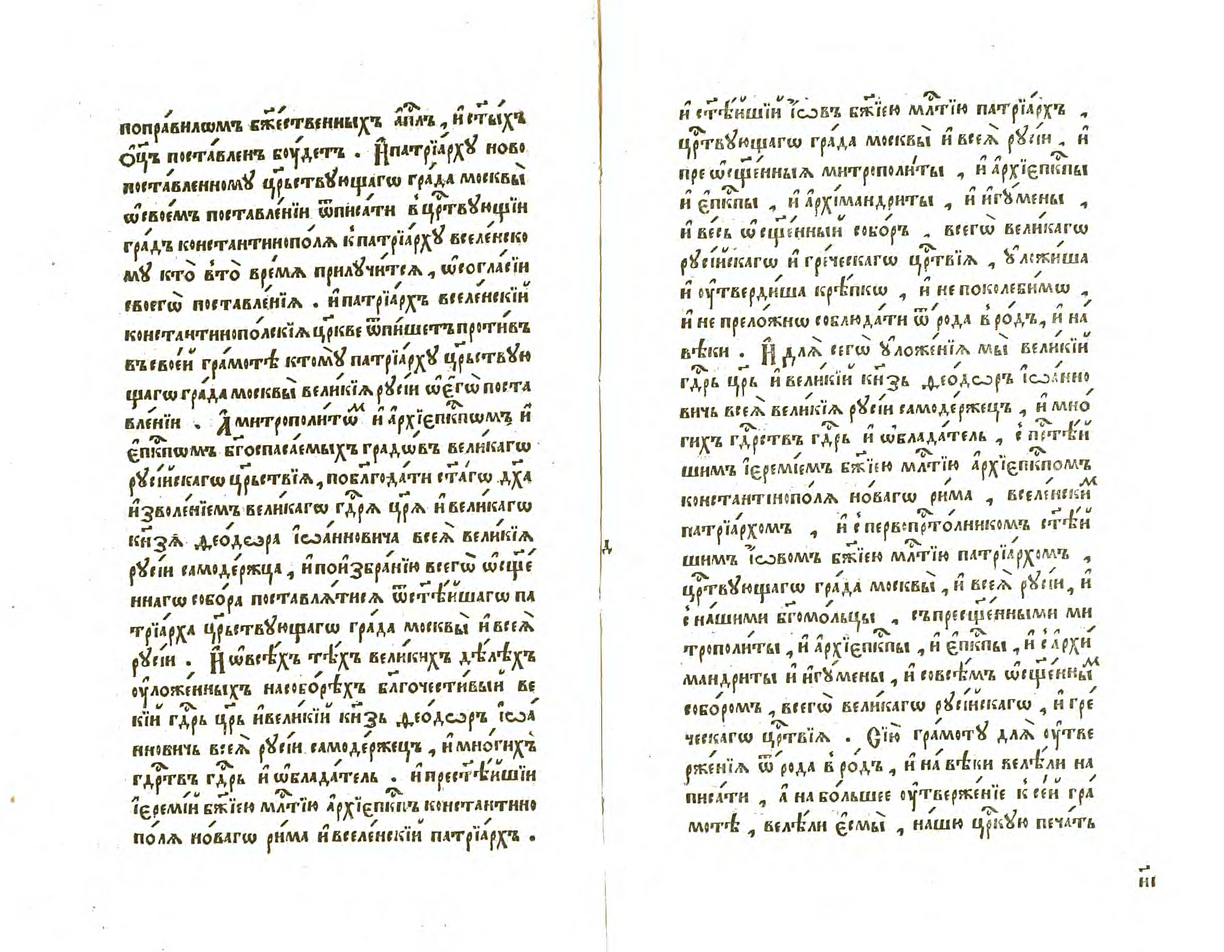 попра́вилѡмъ бж҃е́ственныхъ а҆пл҃ъ , и҆ ст҃ы́хъ
ѻ҆ц҃ъ поста́вленъ бꙋ́детъ . И҆патрїа́рхꙋ ново
поста́вленномꙋ црⷭ҇ьствꙋющагѡ гра́да москвы̀
ѡ҆своє́мъ поставле́нїи ѿписа́ти в̾црⷭ҇твꙋющїи
гра́дъ константинопо́лѧ к̾патрїа́рхꙋ вселе́нско
мꙋ кто̀ в̾то̀ вре́мѧ прилꙋчи́тсѧ , ѡ҆согла́сїи
своегѡ̀ поставле́нїѧ . и҆патрїа́рхъ вселе́нскїй
константинопо́лскїѧ цр҃кве ѿпи́шетъ проти́въ
въсвое́й гра́мотѣ ктомꙋ̀ патрїа́рхꙋ црⷭ҇ьствꙋю
щагѡ гра́да москвы̀ вели́кїѧ рꙋсі́и ѡ҆є҆гѡ̀ поста
вле́нїи . А҆ митрополи́тѡⷨ и҆ а҆рхїє҆пкⷭ҇пѡмъ и҆
є҆пкⷭ҇пѡмъ бг҃оспаса́емыхъ градѡ́въ вели́кагѡ
рꙋсі́йскагѡ црⷭ҇ьствїѧ , побл҃года́ти ст҃а́гѡ дх҃а
и҆зволе́нїемъ вели́кагѡ гдⷭ҇рѧ цр҃ѧ̀ и҆ вели́кагѡ
кнѧ́зѧ ѳео́дѡра і҆ѡа́нновича всеѧ̀ вели́кїѧ
рꙋсі́и самоде́ржца , и҆поизбра́нїю всегѡ̀ ѡ҆сщ҃е́
ннагѡ собо́ра поставлѧ́тисѧ ѿст҃ѣ́йшагѡ па
трїа́рха црⷭ҇ьствꙋющагѡ гра́да москвы̀ и҆ всеѧ̀
рꙋсі́и . И҆ ѡ҆всѣ́хъ тѣ́хъ вели́кихъ дѣ́лѣхъ
оу҆ложе́нныхъ насобо́рѣхъ бл҃гочести́вый ве
кїй гдⷭ҇рь цр҃ь и҆вели́кїй кнѧ́зь ѳео́дѡръ і҆ѡа́
нновичь всеѧ̀ рꙋсі́и самоде́ржецъ , и҆мно́гихъ
гдⷭ҇ртвъ гдⷭ҇рь и҆ ѡ҆блада́тель . и҆прест҃ѣ́йшїи
і҆еремі́й бж҃їею млⷭ҇тїю а҆рхїє҆пкⷭ҇пъ константино
по́лѧ но́вагѡ ри́ма и҆вселе́нскїй патрїа́рхъ .
д
и҆ ст҃ѣ́йшїй і҆ѡ́въ бж҃їею млⷭ҇тїю патрїа́рхъ ,
црⷭ҇твꙋющагѡ гра́да москвы̀ и҆ всеѧ̀ рꙋсі́и , и҆
пре ѡ҆сщ҃е́нныѧ митрополи́ты , и҆ а҆рхїє҆пкⷭ҇пы
и҆ є҆пкⷭ҇пы , и҆ а҆рхїмандри́ты , и҆ и҆гꙋ́мены ,
и҆ весь ѡ҆сщ҃е́нный собо́ръ , всегѡ̀ вели́кагѡ
рꙋсі́йскагѡ и҆ гре́ческагѡ црⷭ҇твїѧ , ꙋ҆ложи́ша
и҆ оу҆тверди́ша крѣ́пкѡ , и҆ не поколеби́мѡ ,
и҆ не прело́жнѡ соблюда́ти ѿ ро́да в̾ро́дъ , и҆ на́
вѣки . И҆ длѧ̀ сегѡ̀ ꙋ҆ложе́нїѧ мы̀ вели́кїй
гдⷭ҇рь цр҃ь и҆ вели́кїй кнѧ́зь ѳео́дѡръ і҆ѡа́нно
вичь всеѧ̀ вели́кїѧ рꙋсі́и самоде́ржецъ , и҆ мно́
гихъ гдⷭ҇рствъ гдⷭ҇рь и҆ ѡ҆блада́тель , с̾ пст҃ѣ́й
шимъ і҆еремі́емъ бж҃їею млⷭ҇тїю а҆рхїє҆пкⷭ҇помъ
константінопо́лѧ но́вагѡ ри́ма , вселе́нскиⷨ
патрїа́рхомъ , и҆ с̾ первопрⷭ҇то́лникомъ ст҃ѣ́й
шимъ і҆ѡ́вомъ бж҃їею млⷭ҇тїю патрїа́рхомъ ,
црⷭ҇твꙋющагѡ гра́да москвы̀ , и҆ всеѧ̀ рꙋсі́и , и҆
с̾ на́шими бг҃омо́льцы , съпресщ҃е́нными ми
трополи́ты , и҆ а҆рхїє҆пкⷭ҇пы , и҆ є҆пкⷭ҇пы , и҆ с̾ а҆рхи
мандри́ты и҆ и҆гꙋ́мены , и҆ совсѣ́мъ ѡ҆сщ҃е́нныⷨ
собо́ромъ , всегѡ̀ вели́кагѡ рꙋсі́йскагѡ , и҆ гре́
ческагѡ црⷭ҇твїѧ . Сїю̀ гра́мотꙋ длѧ̀ оу҆тве
рже́нїѧ ѿ ро́да в̾ ро́дъ , и҆ на́ вѣки велѣ́ли на
писа́ти , а҆ на бо́льшее оу҆тверже́нїе к̾ се́й гра́
мотѣ , велѣ́ли є҆смы̀ , на́шю црⷭ҇кꙋю печа́ть
н҃і